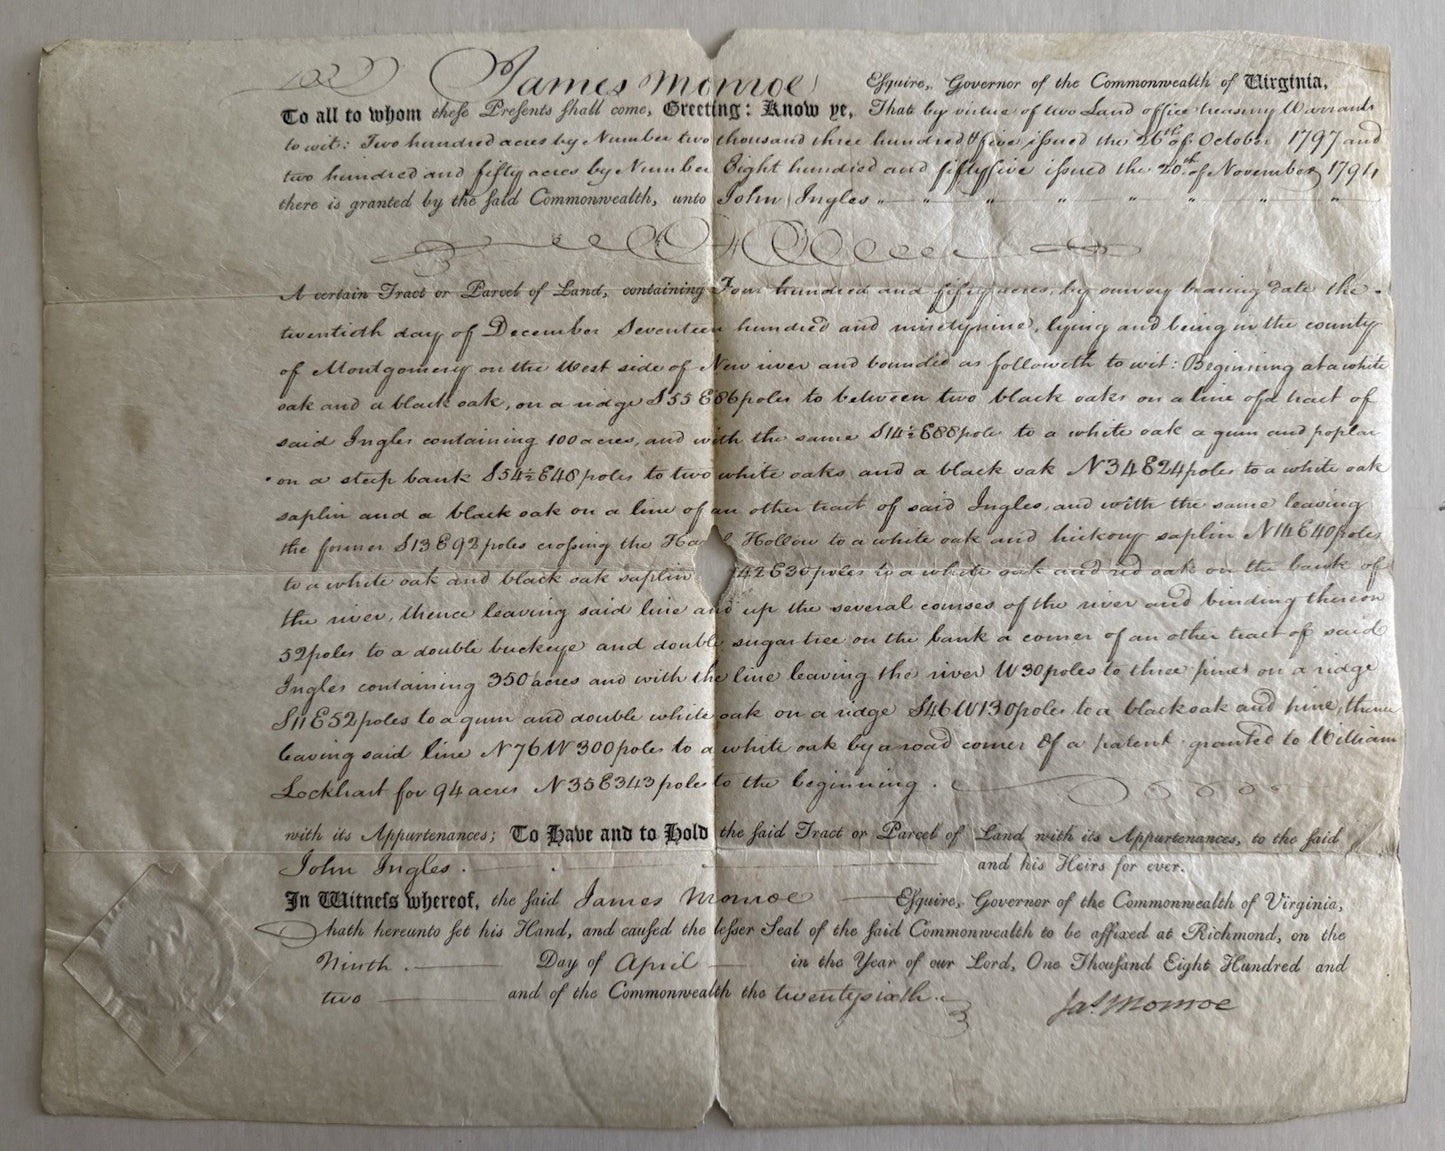 James Monroe Esquire, Governor of the Commonwealth of Virginia,
To all to whom these Presents shall come, Greeting: Know ye, That by virtue of two Land office treasury Warrants
to wit: Two hundred acres by Number two thousand three hundred & five issued the 26th of October 1797 and
two hundred and fifty acres by Number Eight hundred and fifty five issued the 20th of November 1794
there is granted by the said Commonwealth, unto John Ingles
A certain Tract or Parcel of Land, containing Four hundred and fifty acres, by survey bearing date the
twentieth day of December Seventeen hundred and ninetynine, lying and being in the county
of Montgomery on the West side of New river and bounded as followeth to wit: Beginning at a white
oak and a black oak, on a ridge S55 E86 poles to between two black oaks on a line of a tract of
said Ingles containing 100 acres, and with the same S14½ E88 pole to a white oak a gum and poplar
on a steep bank S54½ E48 poles to two white oaks and a black oak N34 E24 poles to a white oak
saplin and a black oak on a line of an other tract of said Ingles, and with the same leaving
the former S13 E92 poles crossing the Hollow to a white oak and hickory saplin N14 E40 poles
to a white oak and black oak saplin 42 E30 poles to a white oak and red oak on the bank of
the river, thence leaving said line and up the several courses of the river and binding thereon
52 poles to a double buckeye and double sugar tree on the bank a corner of an other tract of said
Ingles containing 350 acres and with the line leaving the river W 30 poles to three pines on a ridge
S11 E52 poles to a gum and double white oak on a ridge S46 W130 poles to a black oak and pine, thence
leaving said line N76 W 300 poles to a white oak by a road corner of a patent granted to William
Lockhart for 94 acres N35 E343 poles to the beginning.
with its Appurtenances; To Have and to Hold the said Tract or Parcel of Land with its Appurtenances, to the said
John Ingles. and his Heirs for ever.
In Witness whereof, the said James Monroe Esquire, Governor of the Commonwealth of Virginia,
hath hereunto set his Hand, and caused the lesser Seal of the said Commonwealth to be affixed at Richmond, on the
Ninth. Day of April in the Year of our Lord, One Thousand Eight Hundred and
two and of the Commonwealth the twentysixth.
Jas. Monroe